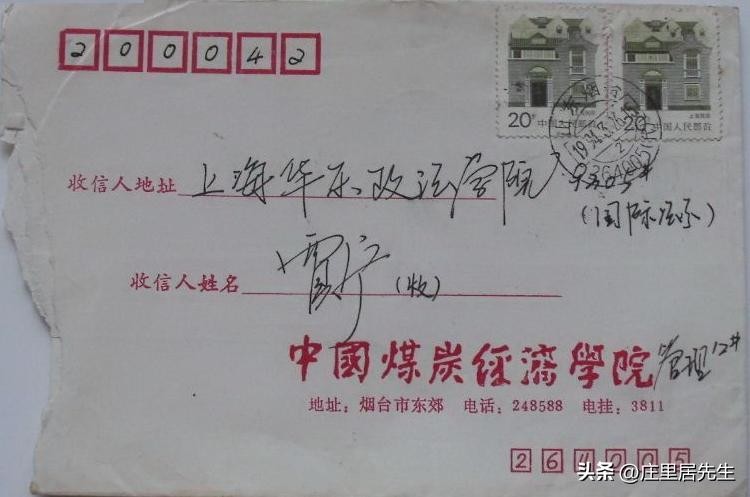 200042
20分 中国人民邮政
20分 中国人民邮政
上海民居
收信人地址 上海华东政法学院
(国际法系)
收信人姓名 (收)
中國煤炭经濟學院 管理
地址：烟台市东郊 电话：248588 电挂：3811
264005
头条 @庄里居先生